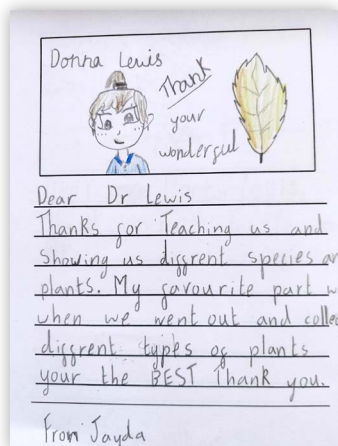 Donna Lewis
Thank
your
wonderful
Dear Dr Lewis
Thanks for Teaching us and
Showing us diffrent species
plants. My favourite part
when we went out and
diffrent types of plants
your the BEST Thank you.
From Jayda